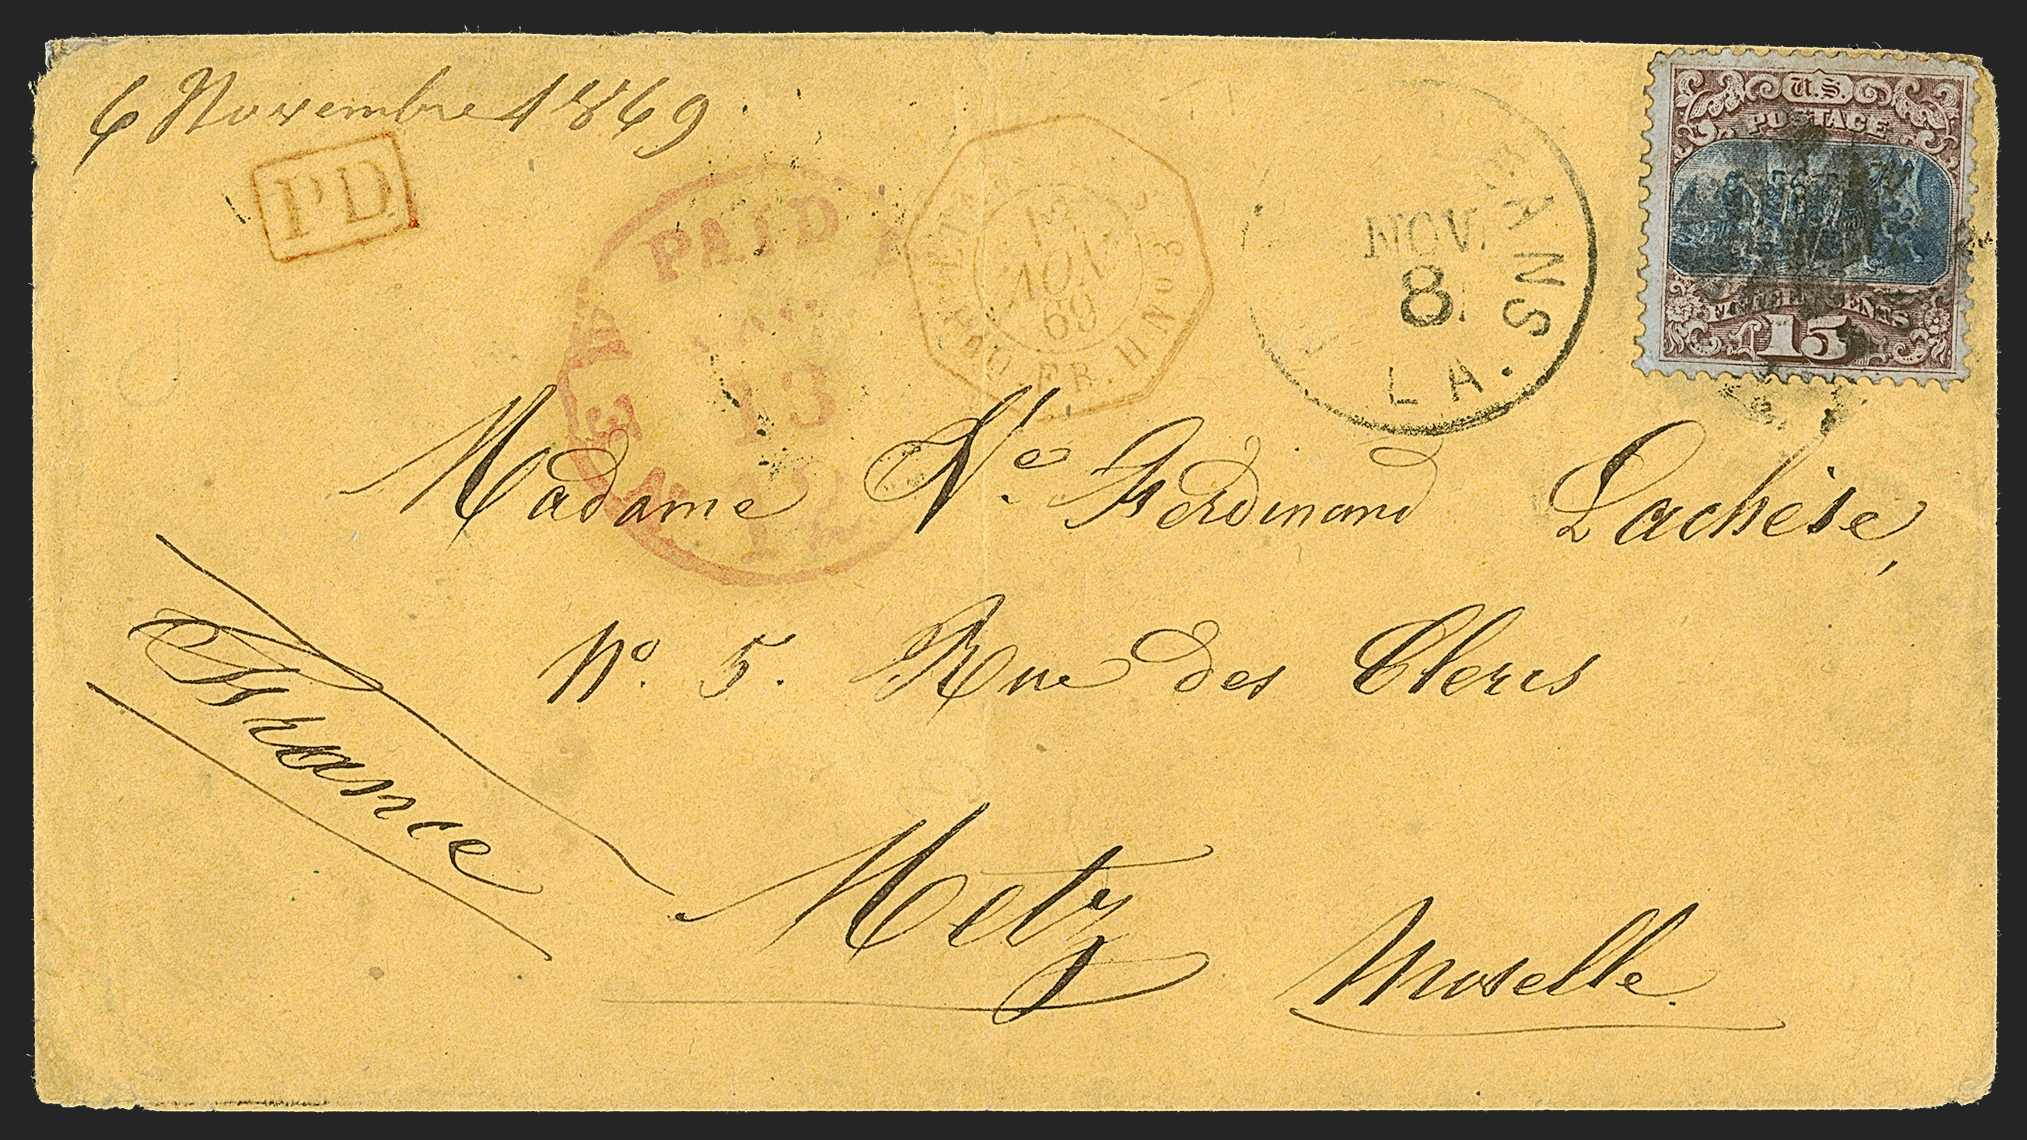 6 Novembre 1869.
PD
PAID
NEW
13
12
13
NOV
69
PAQ. FR. H No 3
ANS
NOV.
8.
LA.
U.S.
POSTAGE
FIFTEEN CENTS
15
Madame Ve. Ferdinand Lachèse,
No. 5. Rue des Clercs
France
Metz
Moselle.